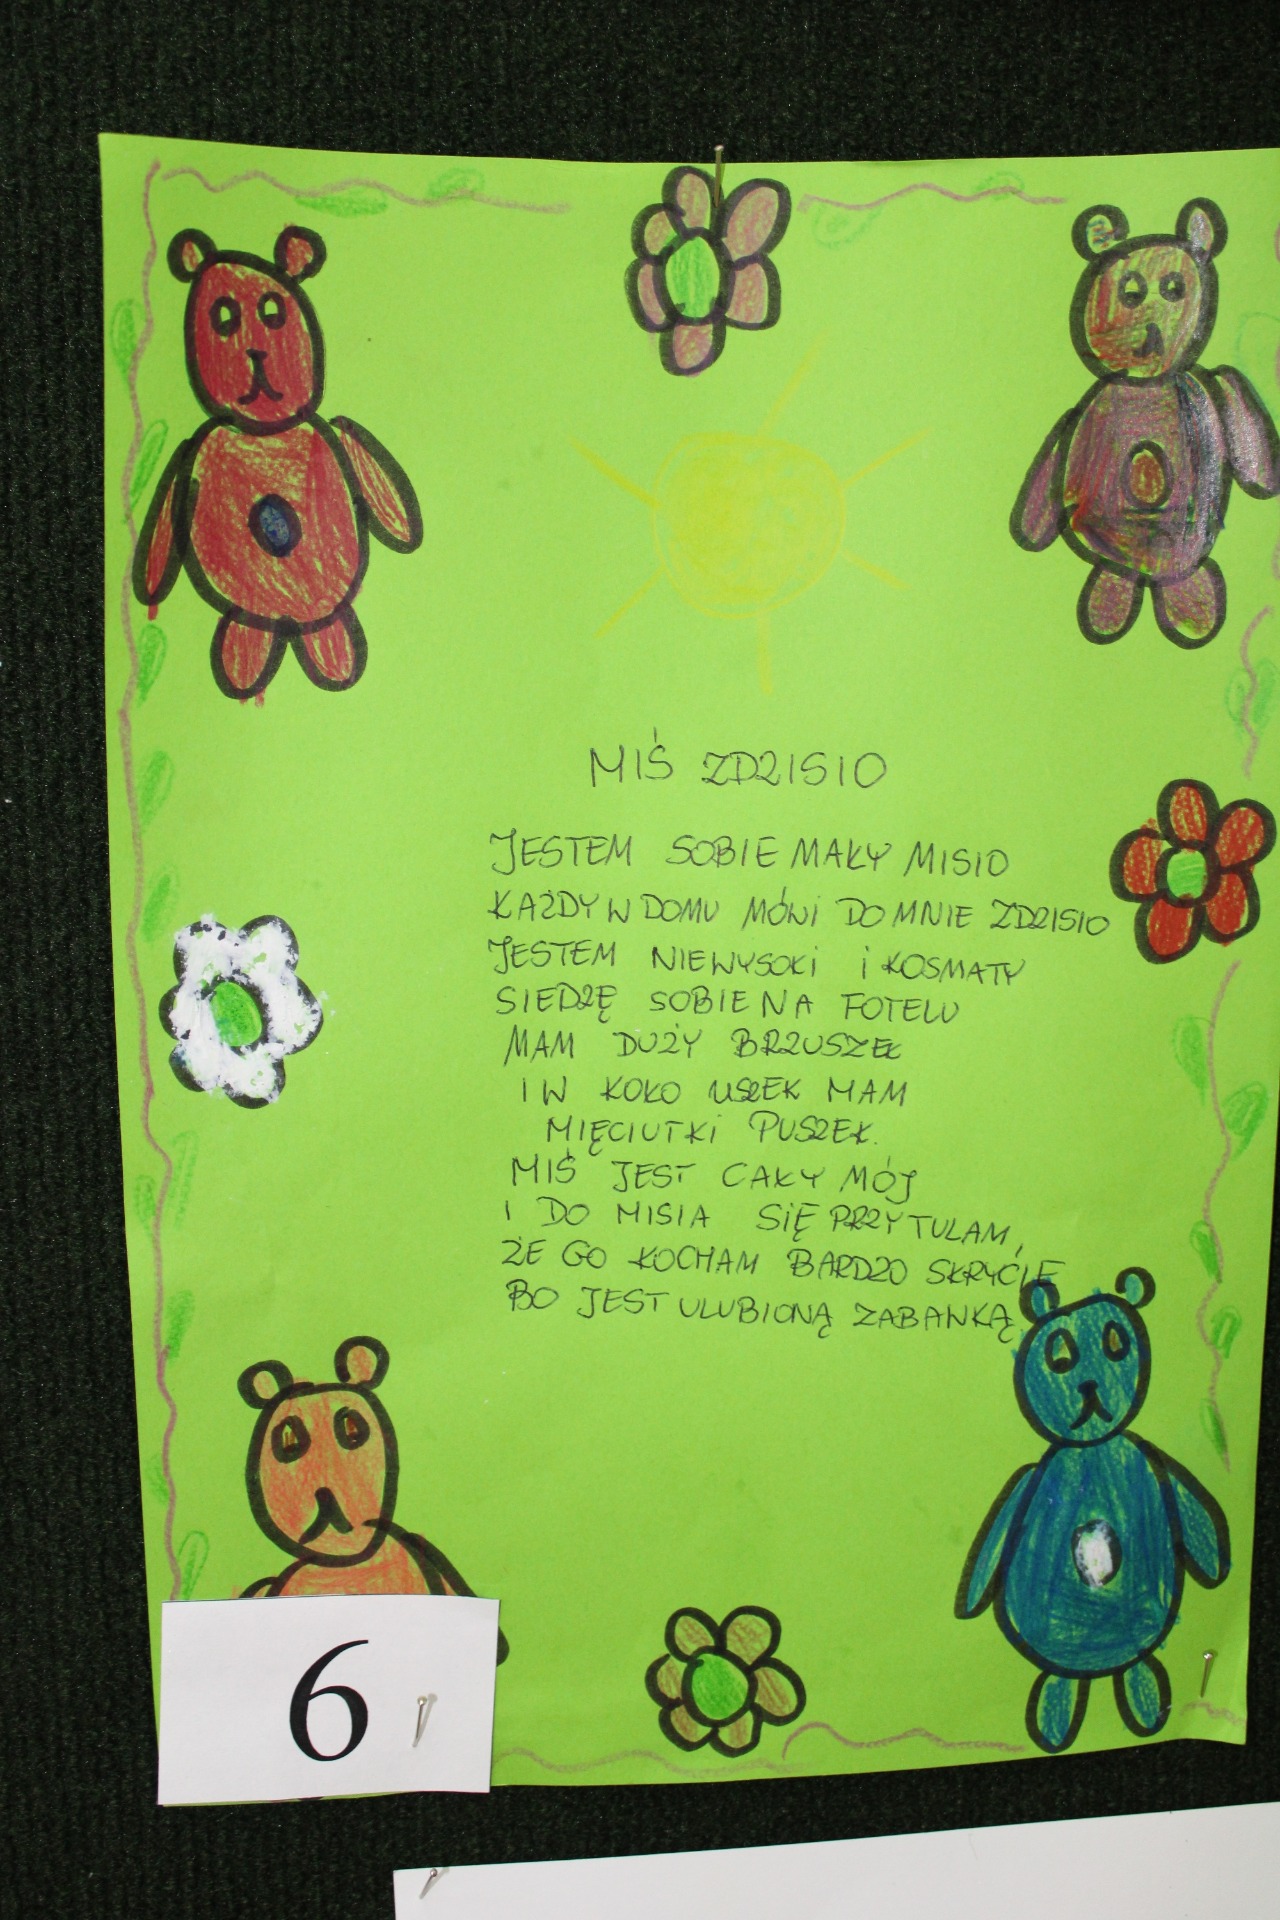 MIŚ ZDZISIO
JESTEM SOBIE MAŁY MISIO
KAŻDY W DOMU MÓWI DO MNIE ZDZISIO
JESTEM NIEWYSOKI I KOSMATY
SIEDZĘ SOBIE NA FOTELU
MAM DUŻY BRZUSZEK
I W KOŁO USZEK MAM
MIĘCIUTKI PUSZEK.
MIŚ JEST CAŁY MÓJ
I DO MISIA SIĘ PRZYTULAM,
ŻE GO KOCHAM BARDZO SKRYCIE
BO JEST ULUBIONĄ ZABANKĄ
6